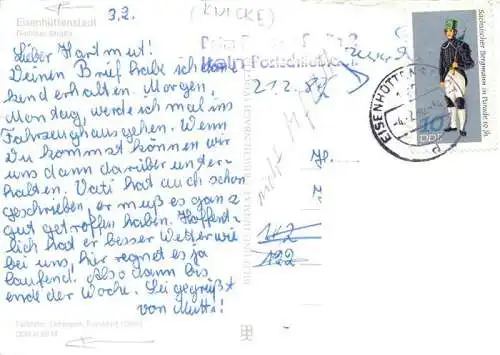 Eisenhüttenstadt
3.2.
(KNICKE)
Straße
Lieber Hartmut!
Deinen Brief habe ich dan-
kend erhalten. Morgen,
Montag, werde ich mal ins
Fahrzeughaus gehen. Wenn
Du kommst können wir
uns dann darüber unter-
halten. Vati hat auch schon
geschrieben, er muß es ganz
gut getroffen haben. Hoffent-
lich hat er besser Wetter wie
bei uns, hier regnet es ja
laufend. Also dann bis
ende der Woche. Sei gegrüßt
von Mutti!
Kein Postschließfach
zurück
21.2.84
nicht
EISENHÜTTENSTADT
Sächsischer Bergmann in Parade 19. Jh.
10
DDR
H.
142
122